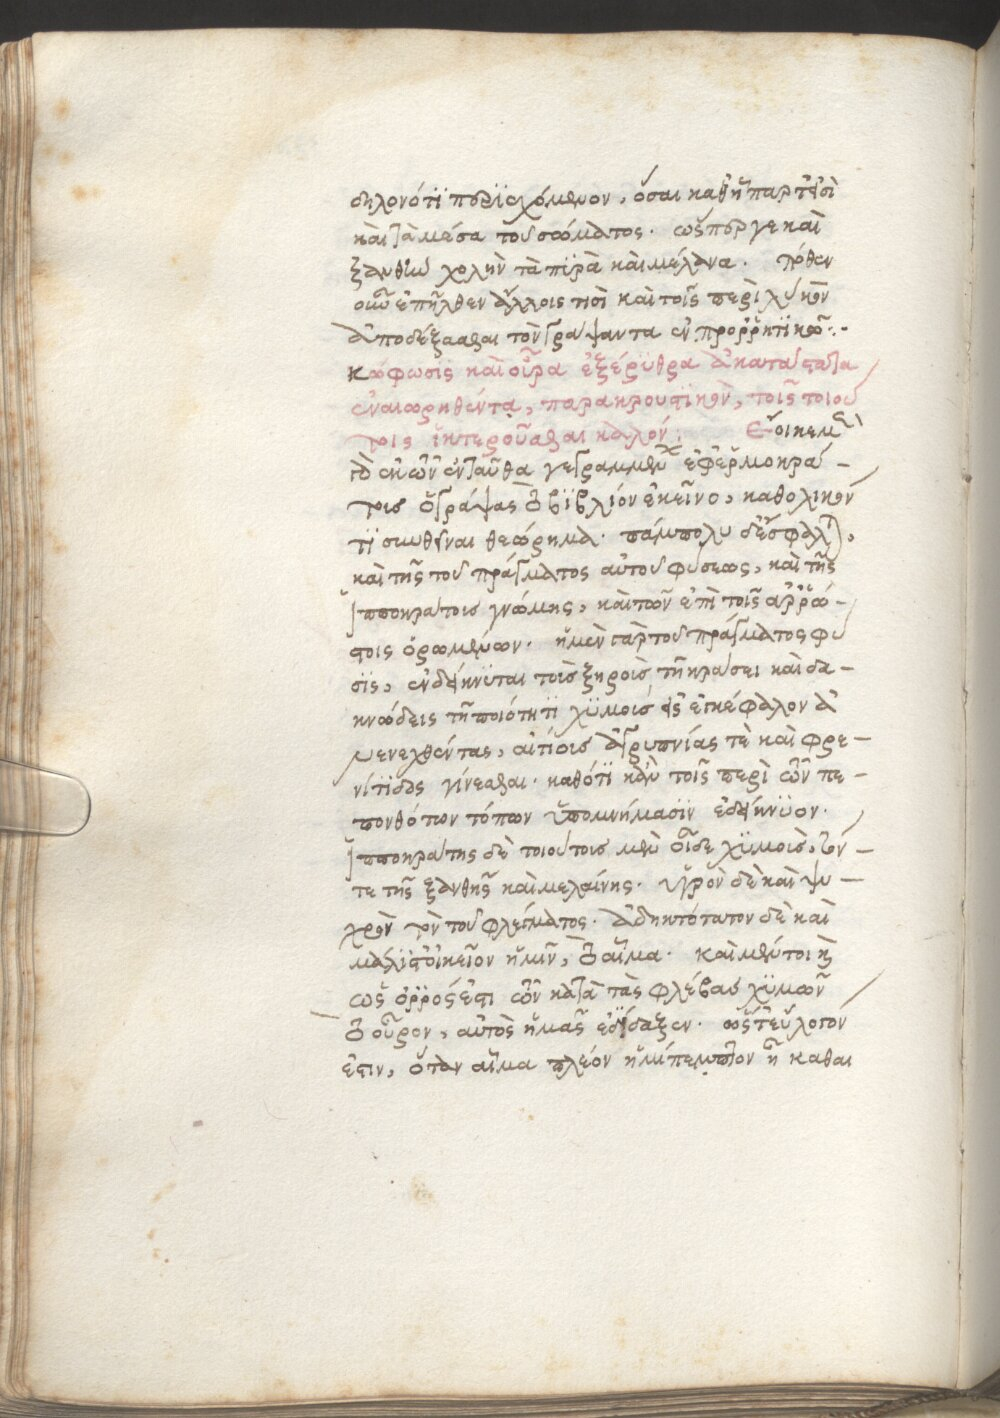 δηλονότι περιεχόμενον, ὅσαι καθ' ἧπαρ τέ εἰσι
καὶ τὰ μέσα τοῦ σώματος. ὥσπερ γε καὶ
ξανθὴν χολὴν τὰ πικρὰ καὶ μέλανα. πόθεν
οὖν ἐπῆλθεν ἄλλοις τισὶ καὶ τοῖς περὶ λύκον
ἀποδέξασθαι τὸν γράψαντα ἐν προρρητικῶ:-
Κώφωσις καὶ οὖρα ἐξέρυθρα ἀκατάστατα
ἐναιωρηθέντα, παρακρουστικὸν, τοῖς τοιού
τοις ἰκτεροῦσθαι κακόν. Ἔοικεν
τὸ ἐκ τῶν ἐνταῦθα γεγραμμένων ἐφ' ἑρμοκρά-
τους ὁ γράψας τὸ βιβλίον ἐκεῖνο, καθολικόν
τι συνθεῖναι θεώρημα. πάμπολυ δ' ἔσφαλται,
καὶ τῆς τοῦ πράγματος αὐτοῦ φύσεως, καὶ τῆς
ἱπποκράτους γνώμης, καὶ τῶν ἐπὶ τοῖς ἀρρώ-
στοις ὁρωμένων. ἡ μὲν γὰρ τοῦ πράγματος φύ
σις, ἐνδείκνυται τοῖς ξηροῖς τῆ κράσει καὶ δα-
κνώδεις τῆ ποιότητι χυμοῖς εἰς ἐγκέφαλον ἀ
νενεχθέντας, αἰτίοις ἀγρυπνίας τὲ καὶ φρε-
νίτιδος γίνεσθαι. καθότι κἀν τοῖς περὶ τῶν πε-
πονθότων τόπων ὑπομνήμασιν ἐδείκνυον.
ἱπποκράτης δὲ τοιούτους μὲν οἶδε χυμοὺς, τόν-
τε τῆς ξανθῆς καὶ μελαίνης. ὑγρὸν δὲ καὶ ψυ-
χρὸν τὸν τοῦ φλέγματος. ἀδηκτότατον δὲ καὶ
μάλιστ' οἰκεῖον ἡμῖν, τὸ αἷμα. καὶ μέντοι καὶ
ὡς ὀρρός ἐστι τῶν κατὰ τὰς φλέβας χυμῶν
τὸ οὖρον, αὐτὸς ἡμᾶς ἐδίδαξεν. ὥστ' εὔλογον
ἐστιν, ὅταν αἷμα πλέον ἡμίπεπτον ἢ καθαι